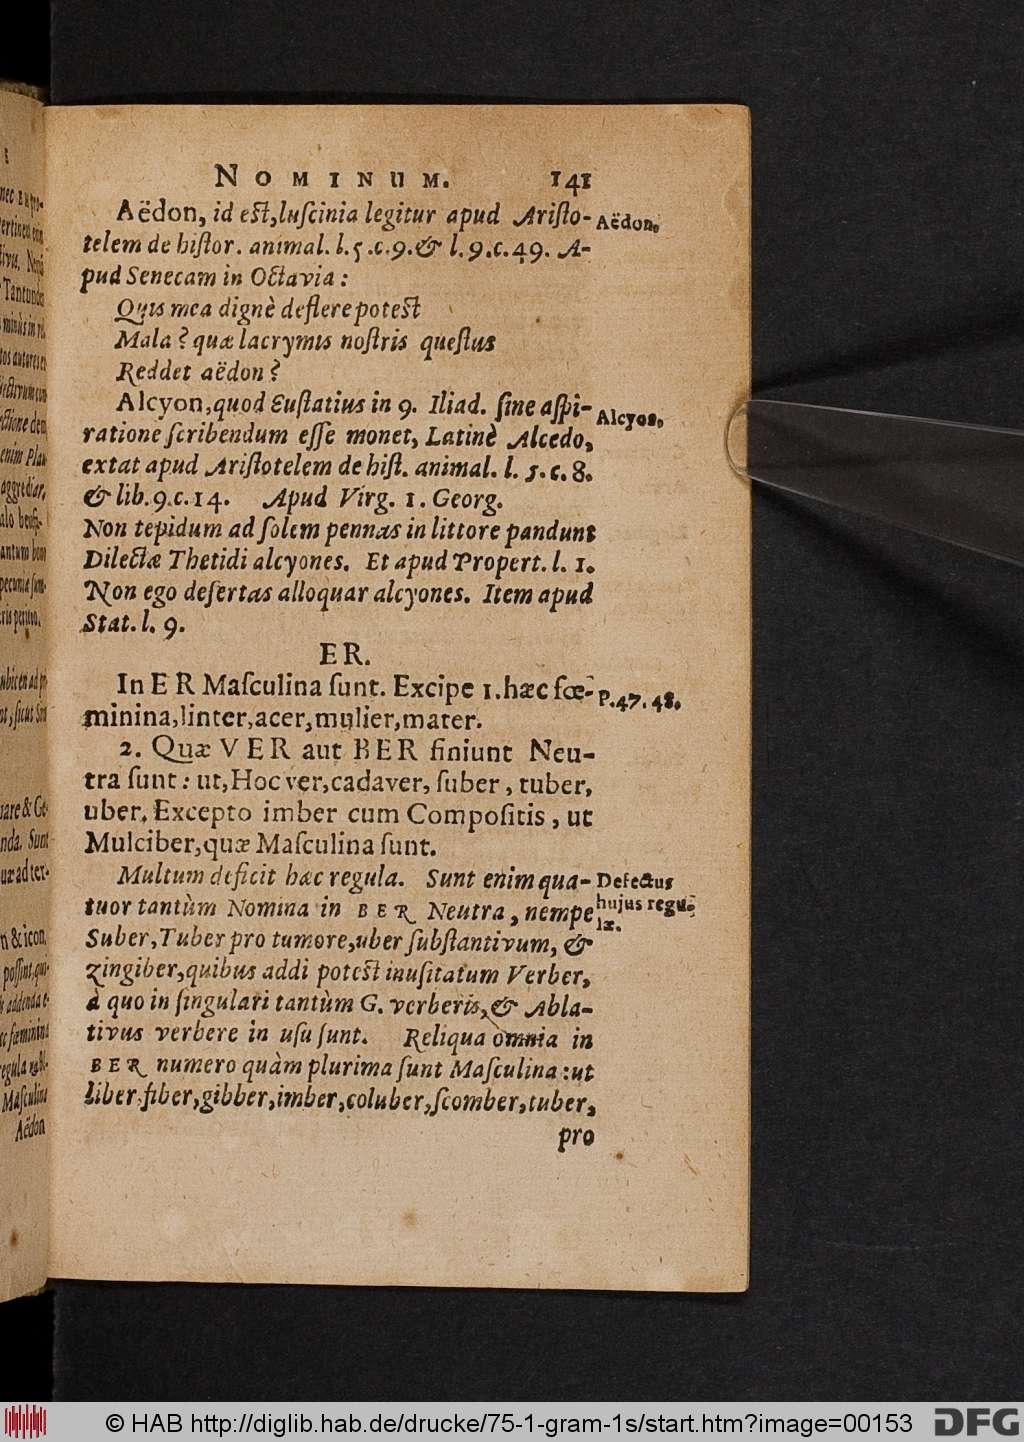 NOMINUM. 141
Aëdon, id eſt, luſcinia legitur apud Ariſto-
telem de hiſtor. animal. l. 5. c. 9. & l. 9. c. 49. A-
pud Senecam in Octavia:
Quis mea dignè deflere poteſt
Mala? quæ lacrymis noſtris queſtus
Reddet aëdon?
Alcyon, quod Euſtatius in 9. Iliad. ſine aſpi-
ratione ſcribendum eſſe monet, Latinè Alcedo,
extat apud Ariſtotelem de hiſt. animal. l. 5. c. 8.
& lib. 9. c. 14. Apud Virg. 1. Georg.
Non tepidum ad ſolem pennas in littore pandunt
Dilectæ Thetidi alcyones. Et apud Propert. l. 1.
Non ego deſertas alloquar alcyones. Item apud
Stat. l. 9.
ER.
In ER Maſculina ſunt. Excipe 1. hæc fœ-
minina, linter, acer, mulier, mater.
2. Quæ VER aut BER finiunt Neu-
tra ſunt: ut, Hoc ver, cadaver, ſuber, tuber,
uber. Excepto imber cum Compoſitis, ut
Mulciber, quæ Maſculina ſunt.
Multum deficit hæc regula. Sunt enim qua-
tuor tantùm Nomina in BER Neutra, nempe
Suber, Tuber pro tumore, uber ſubſtantivum, &
zingiber, quibus addi poteſt inuſitatum Verber,
à quo in ſingulari tantùm G. verberis, & Abla-
tivus verbere in uſu ſunt. Reliqua omnia in
BER numero quàm plurima ſunt Maſculina: ut
liber, fiber, gibber, imber, coluber, ſcomber, tuber,
pro
Aëdon.
Alcyon.
P. 47. 48.
Defectus
hujus regu-
læ.
© HAB http://diglib.hab.de/drucke/75-1-gram-1s/start.htm?image=00153
DFG